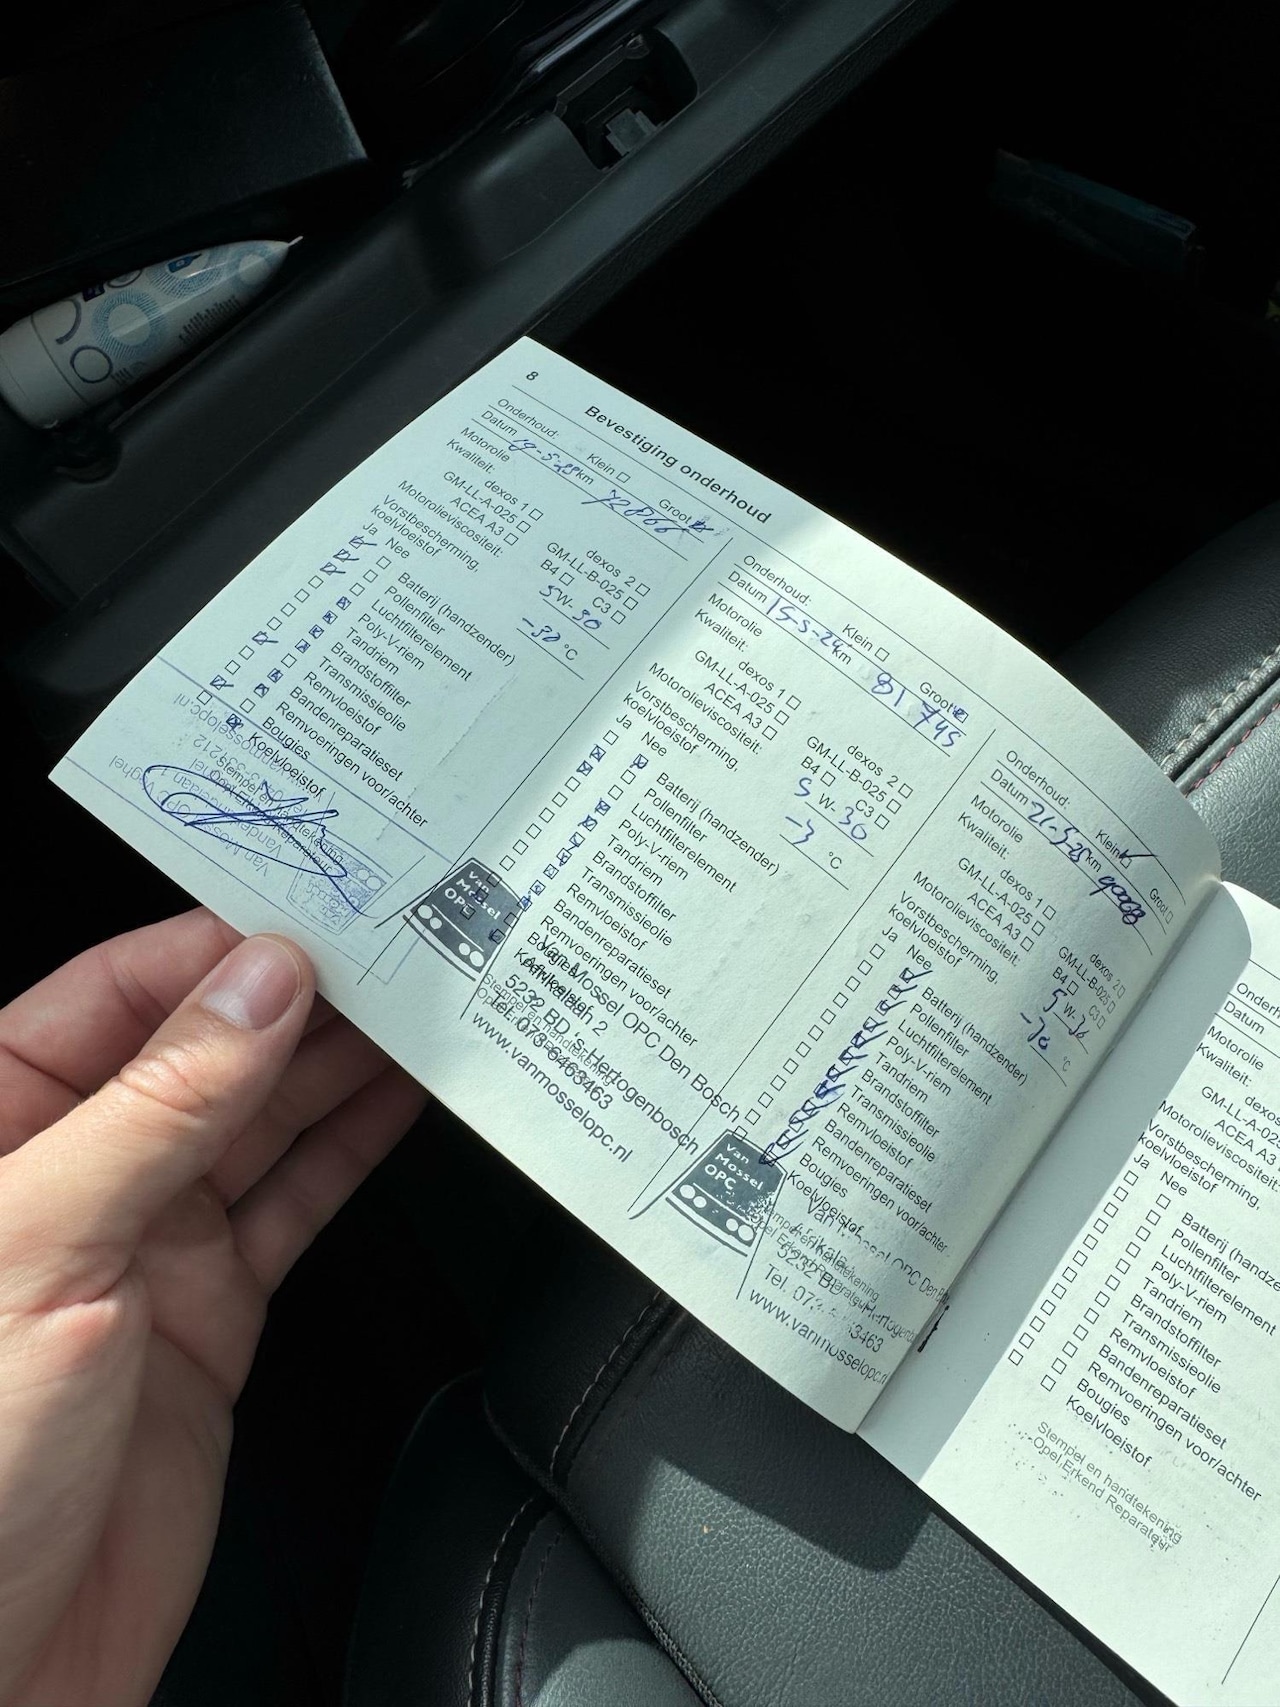 8
Bevestiging onderhoud
Onderhoud: Klein Groot
Datum km
Motorolie
Kwaliteit:
dexos 1 dexos 2
GM-LL-A-025 GM-LL-B-025
ACEA A3 B4 C3
Motorolieviscositeit: 5W-30
Vorstbescherming,
koelvloeistof -30 °C
Ja Nee
Batterij (handzender)
Pollenfilter
Luchtfilterelement
Poly-V-riem
Tandriem
Brandstoffilter
Transmissieolie
Remvloeistof
Bandenreparatieset
Remvoeringen voor/achter
Bougies
Koelvloeistof
Onderhoud: Klein Groot
Datum 15-5-24 km 81 745
Motorolie
Kwaliteit:
dexos 1 dexos 2
GM-LL-A-025 GM-LL-B-025
ACEA A3 B4 C3
Motorolieviscositeit: 5 W-30
Vorstbescherming,
koelvloeistof °C
Ja Nee
Batterij (handzender)
Pollenfilter
Luchtfilterelement
Poly-V-riem
Tandriem
Brandstoffilter
Transmissieolie
Remvloeistof
Bandenreparatieset
Remvoeringen voor/achter
Bougies
Koelvloeistof
Van Mossel OPC
Van Mossel OPC Den Bosch
Afrikalaan 2
5232 BD 's-Hertogenbosch
Tel. 073-6463463
www.vanmosselopc.nl
Onderhoud: Klein Groot
Datum km
Motorolie
Kwaliteit:
dexos 1 dexos 2
GM-LL-A-025 GM-LL-B-025
ACEA A3 B4 C3
Motorolieviscositeit: 5 W-30
Vorstbescherming,
koelvloeistof °C
Ja Nee
Batterij (handzender)
Pollenfilter
Luchtfilterelement
Poly-V-riem
Tandriem
Brandstoffilter
Transmissieolie
Remvloeistof
Bandenreparatieset
Remvoeringen voor/achter
Bougies
Koelvloeistof
Van Mossel OPC
www.vanmosselopc.nl
Datum
Motorolie
Kwaliteit:
GM-LL-A-025
ACEA A3
Motorolieviscositeit:
Vorstbescherming,
koelvloeistof
Ja Nee
Batterij
Pollenfilter
Luchtfilterelement
Poly-V-riem
Tandriem
Brandstoffilter
Transmissieolie
Remvloeistof
Bandenreparatieset
Remvoeringen voor/achter
Bougies
Koelvloeistof
Stempel en handtekening
Opel Erkend Reparateur